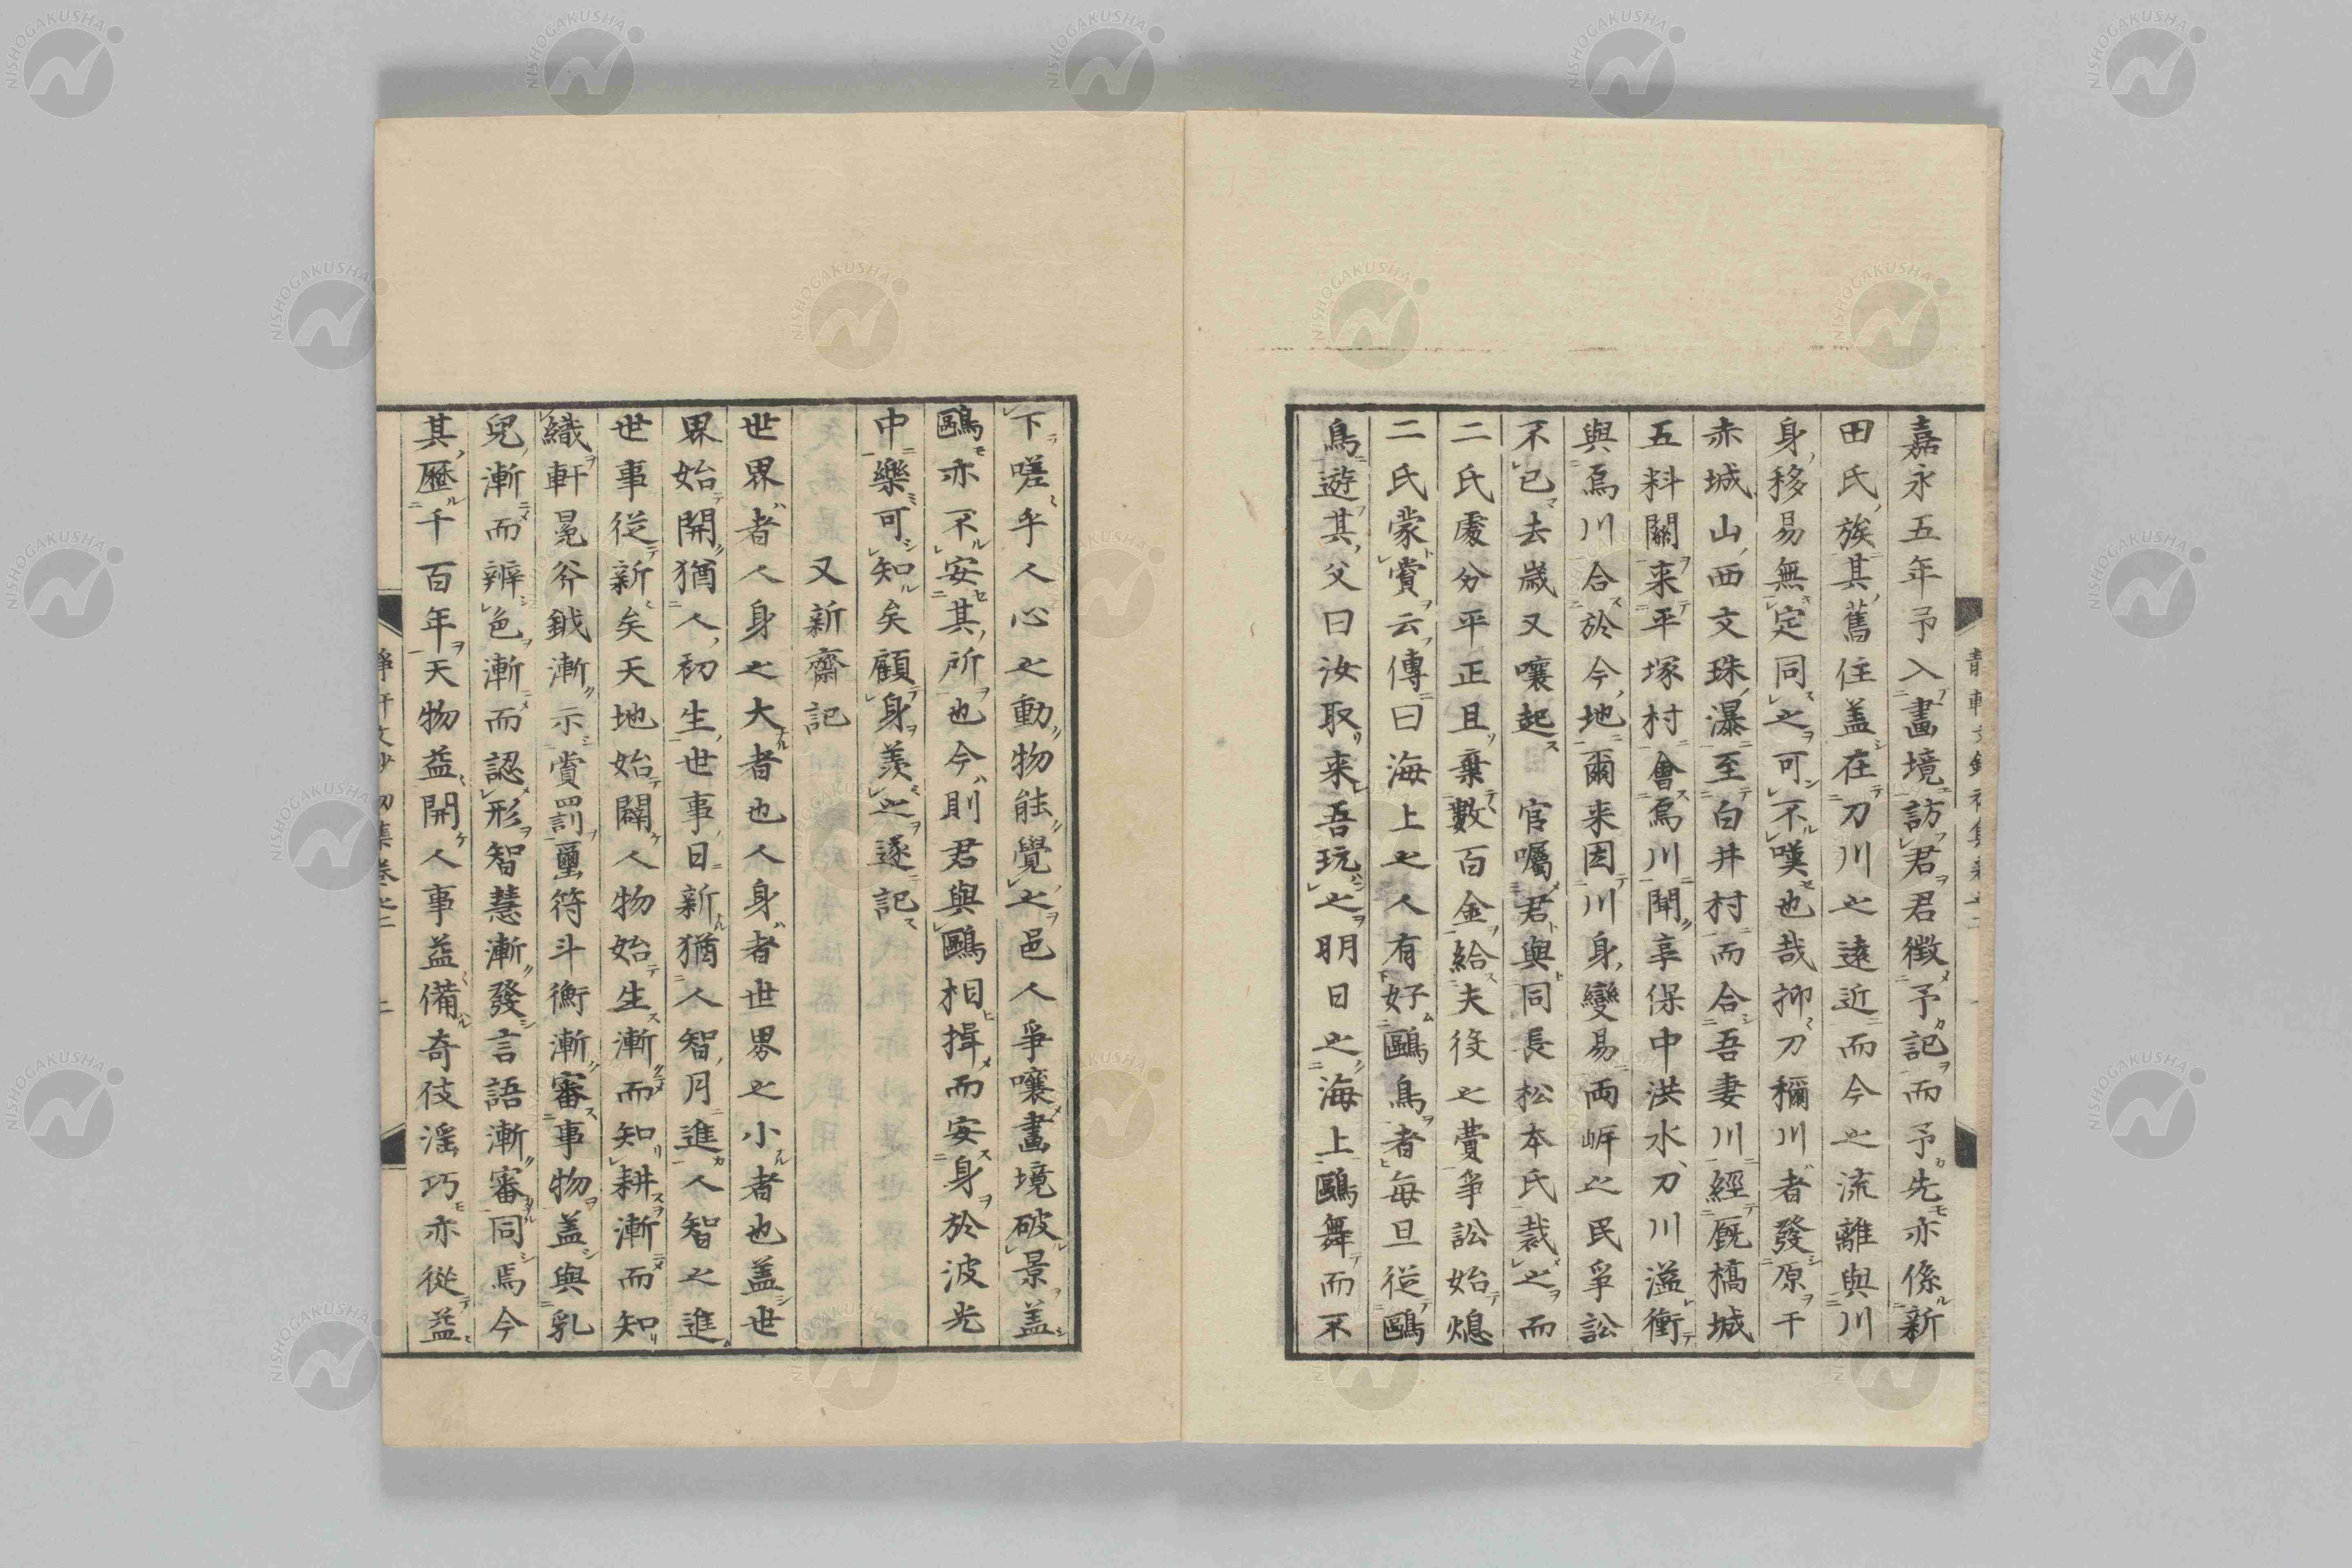 嘉永五年予入畫境訪君君徴予記而予先亦係新
田氏族其舊住盖在刀川之遠近而今之流離與川
身移易無定同之可不嘆也哉抑刀稱川者發原于
赤城山西文珠瀑至白井村而合吾妻川經厩橋城
五料關来平塚村會烏川聞享保中洪水刀川溢衝
與烏川合於今地爾来因川身變易両岼之民爭訟
不已去歳又嚷起 官囑君與同長松本氏裁之而
二氏處分平正且棄數百金給夫役之費爭訟始熄
二氏蒙賞云傳曰海上之人有好鷗鳥者毎旦従鷗
鳥遊其父曰汝取来吾玩之明日之海上鷗舞而不
下嗟乎人心之動物能覺之邑人爭嚷畫境破景盖
鷗亦不安其所也今則君與鷗相揖而安身於波光
中樂可知矣顧身羨之遂記
又新齋記
世界者人身之大者也人身者世界之小者也盖世
界始開猶人初生世事日新猶人智月進人智之進
世事従新矣天地始闢人物始生漸而知耕漸而知
織軒冕斧鉞漸示賞罰璽符斗衡漸審事物盖與乳
兒漸而辨色漸而認形智慧漸發言語漸審同焉今
其歴千百年天物益開人事益備奇伎滛巧亦從益
靜軒文鈔初集巻之二 二
NISHOGAKUSHA